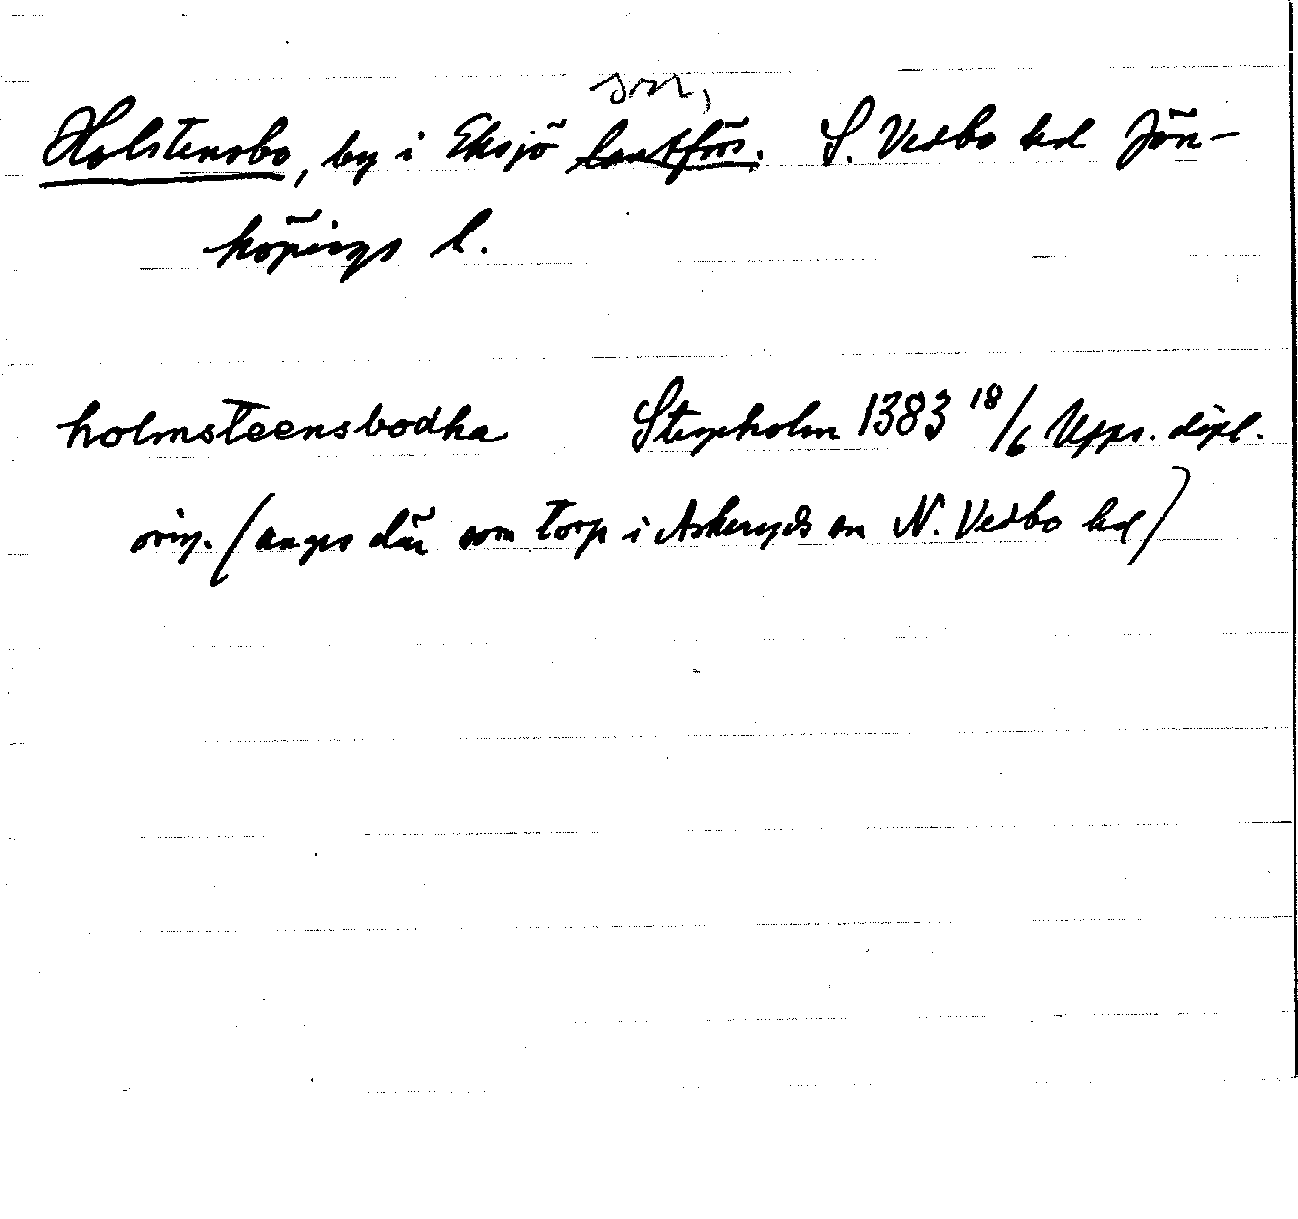 sn,
Holstensbo, by i Eksjö landsförs. S. Vedbo hd Jön-
köpings l.
holmsteensbodha Stegeholm 1383 18/6 Upps. dipl.
orig. (anges där som torp i Askeryds sn N. Vedbo hd)